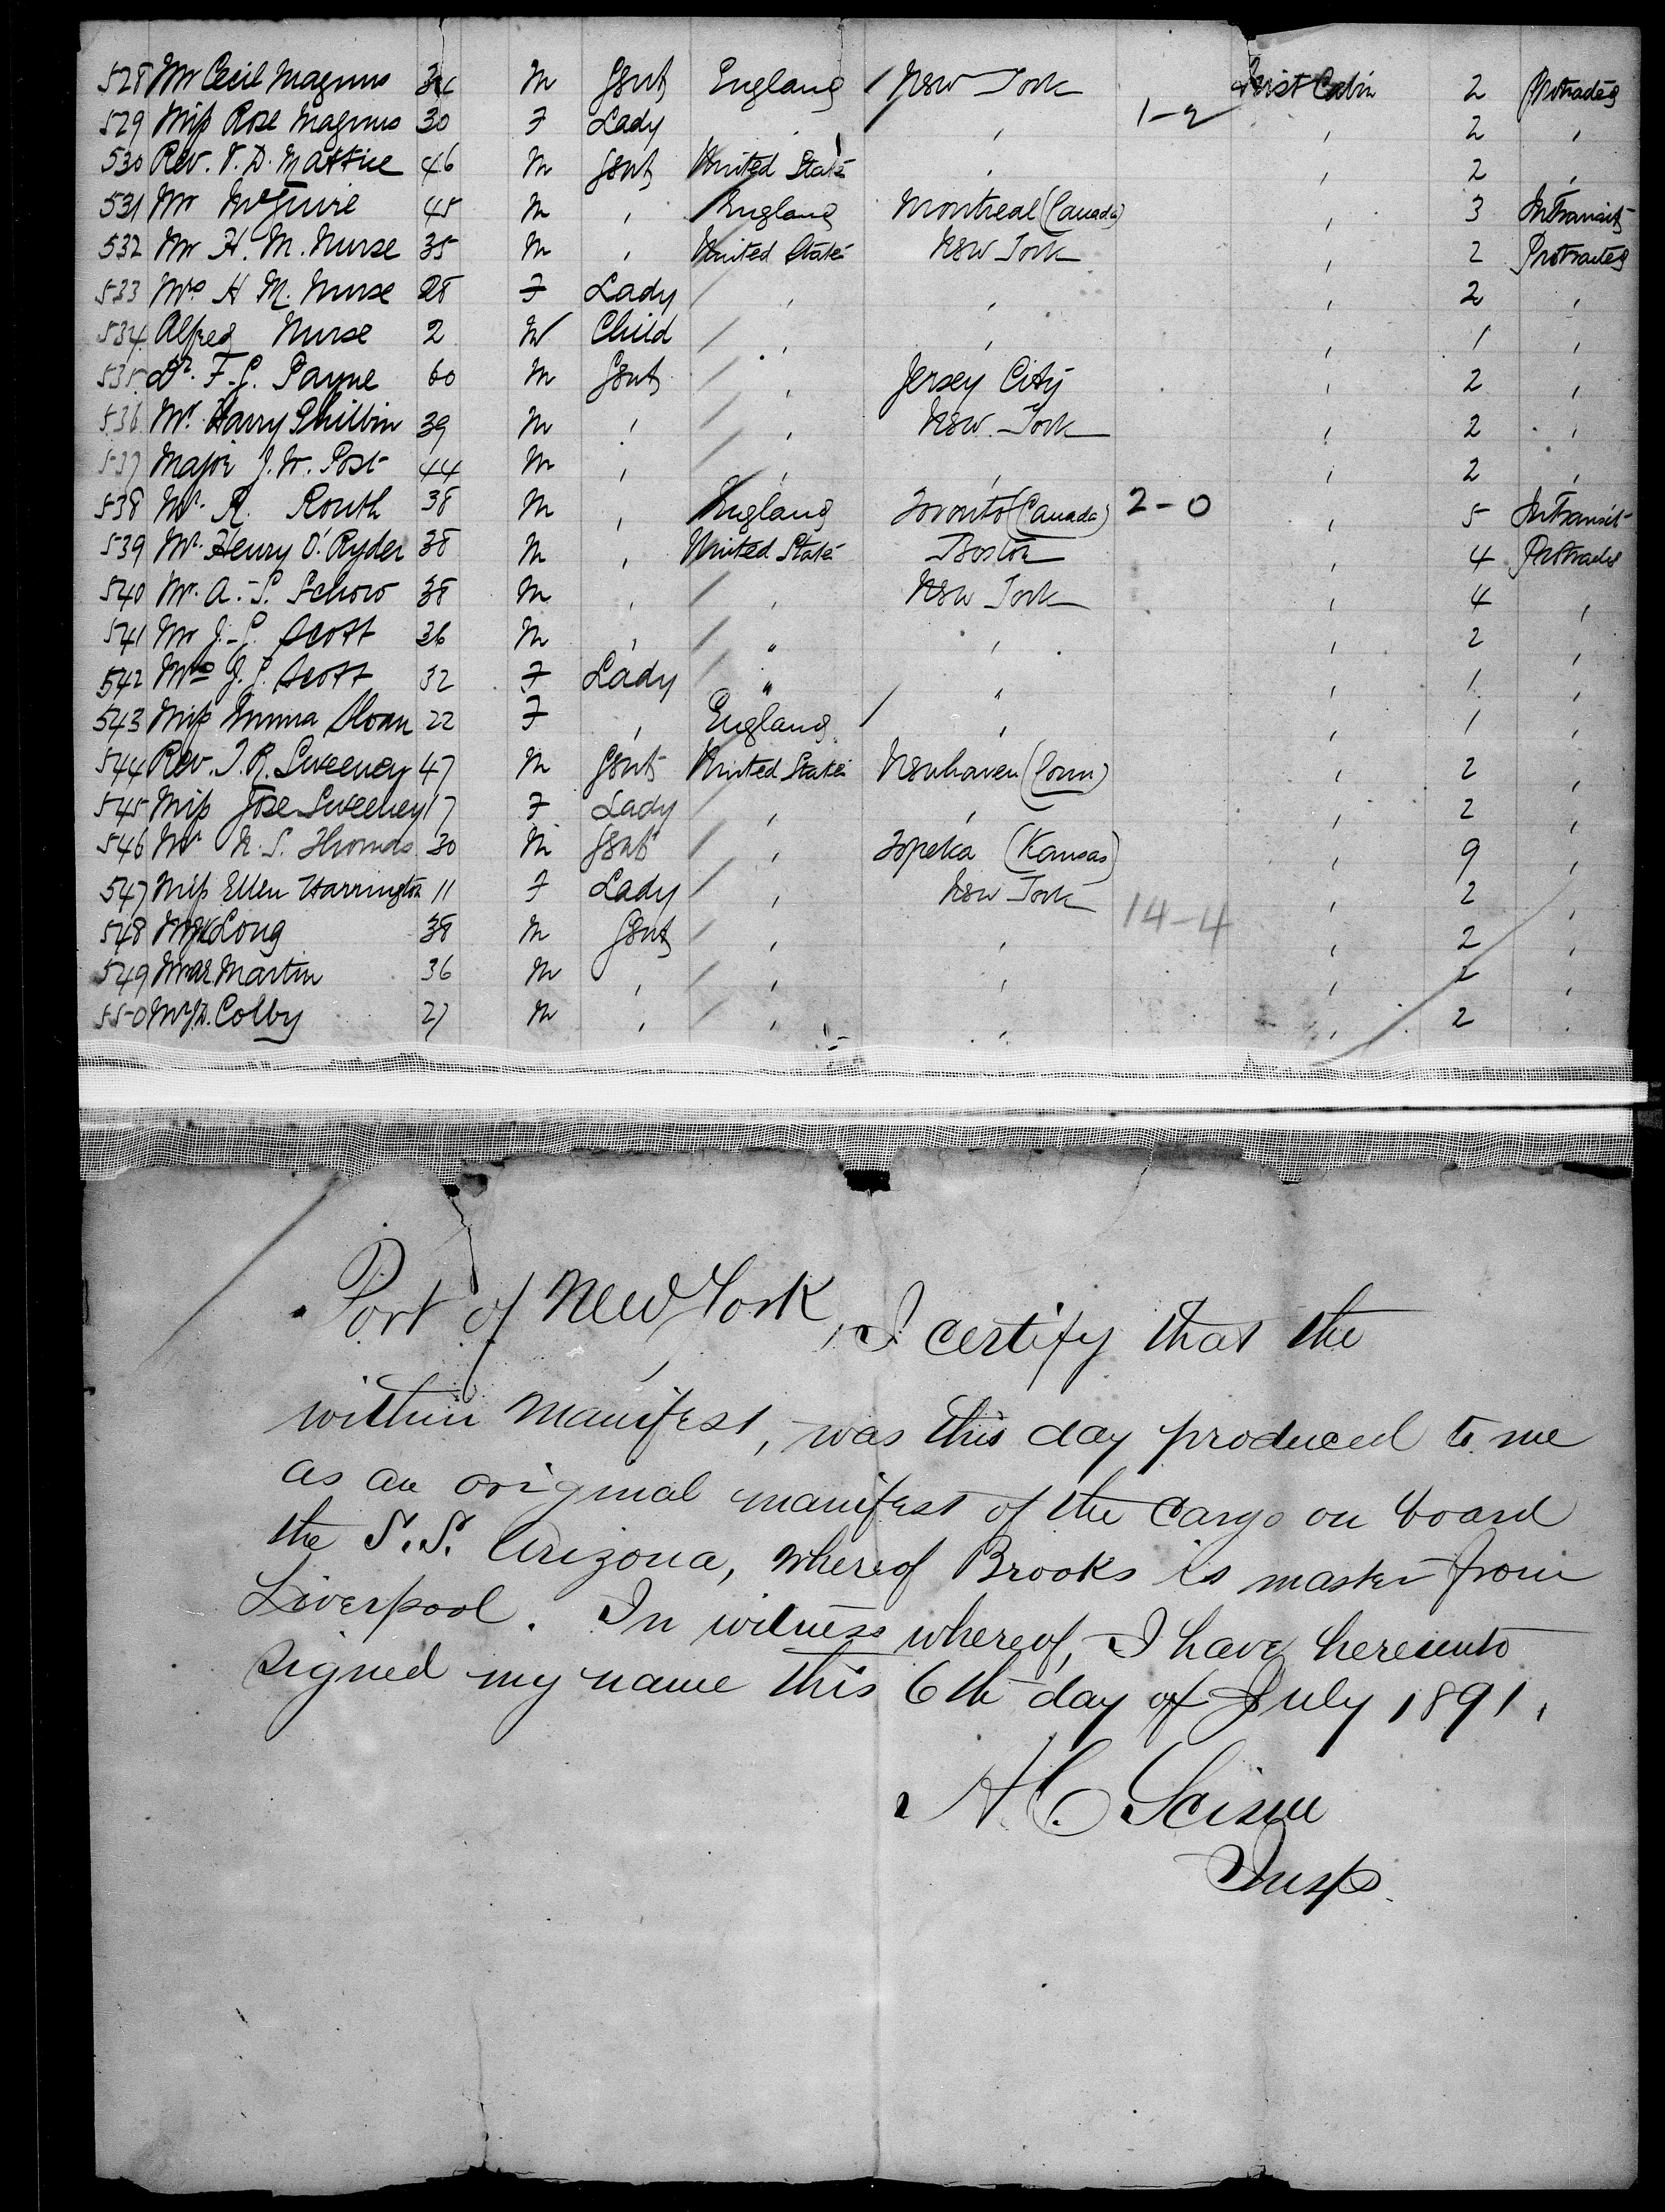 528 Mr Cecil Magnus 34 M Gent England / New York First Cabin 2 Protracted
529 Miss Rose Magnus 30 F Lady " " 1-2 " 2 "
530 Rev. V. D. Mattice 46 M Gent United States " " 2 "
531 Mr McGuire 45 M " England Montreal (Canada) " 3 InTransit
532 Mr H. M. Nurse 35 M " United States New York " 2 Protracted
533 Mrs H M. Nurse 28 F Lady " " " 2 "
534 Alfred Nurse 2 M Child " " " 1 "
535 Dr. F. S. Payne 60 M Gent " Jersey City " 2 "
536 Mr. Harry Philbin 39 M " " New York " 2 "
537 Major J. W. Post 44 M " " " " 2 "
538 Mr. R. Routh 38 M " England Toronto (Canada) 2-0 " 5 InTransit
539 Mr. Henry O'Ryder 38 M " United States Boston " 4 Protracted
540 Mr. A. S. Schow 38 M " " New York " 4 "
541 Mr J. S. Scott 36 M " " " " 2 "
542 Mrs J. S. Scott 32 F Lady " " " 1 "
543 Miss Emma Sloan 22 F " England / " " 1 "
544 Rev. T. R. Sweeney 47 M Gent United States Newhaven (Conn) " 2 "
545 Miss Jose Sweeney 17 F Lady " " " 2 "
546 Mr N. S. Thomas 30 M Gent " Topeka (Kansas) " 9 "
547 Miss Ellen Harrington 11 F Lady " New York 14-4 " 2 "
548 Long 38 M Gent " " " 2 "
549 Martin 36 M " " " " 2 "
550 Colby 27 M " " " " 2 "
Port of New York, I certify that the
within manifest, was this day produced to me
as an original manifest of the cargo on board
the S.S. Arizona, whereof Brooks is master from
Liverpool. In witness whereof, I have hereunto
signed my name this 6th day of July 1891.
A C Scism
Insp.